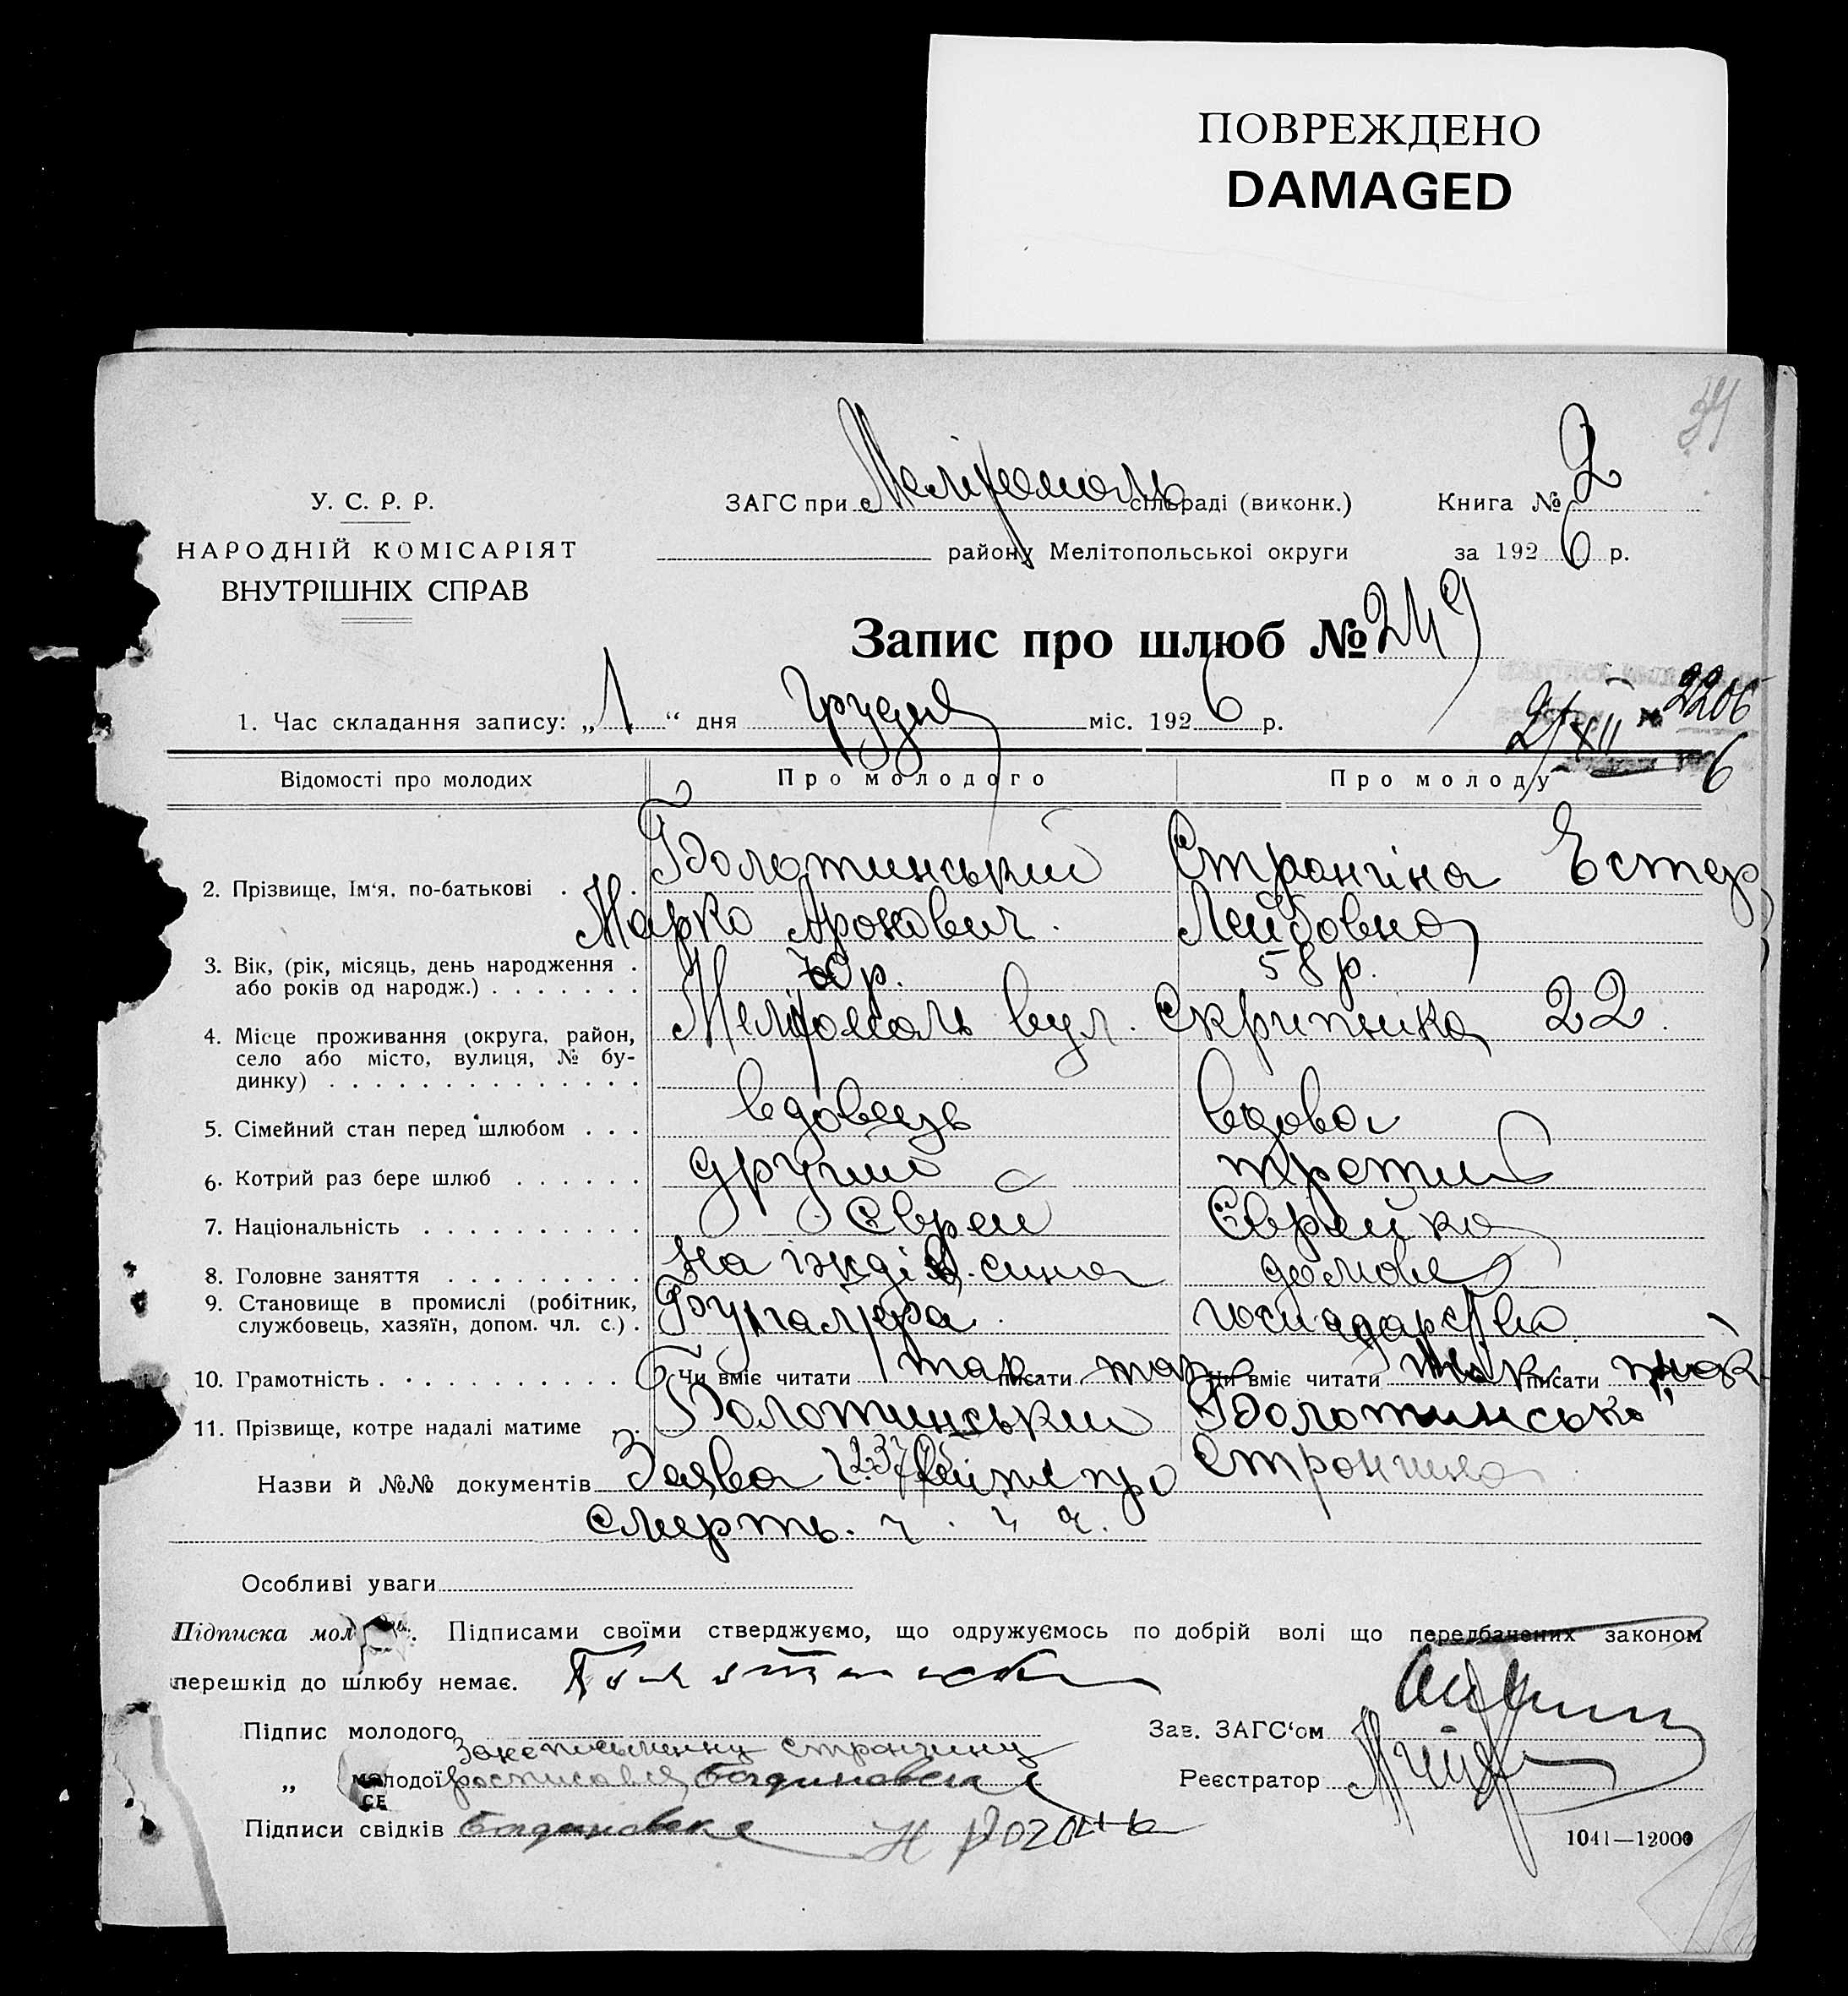 ПОВРЕЖДЕНО
DAMAGED
34
У. С. Р. Р.
НАРОДНІЙ КОМІСАРІЯТ
ВНУТРІШНІХ СПРАВ
ЗАГС при Мелітополь сільраді (виконк.) Книга № 2
району Мелітопольської округи за 192 6 р.
Запис про шлюб № 249
2206
21/XII 6
1. Час складання запису: „ 1 “ дня грудня міс. 192 6 р.
Відомості про молодих Про молодого Про молоду
2. Прізвище, Ім'я, по-батькові . . Болотинський Стронгіна Естер
Марко Аронович. Лейбовна
3. Вік, (рік, місяць, день народження . або років од народж.) . . . . . . . 70 р. 58 р.
4. Місце проживання (округа, район, село або місто, вулиця, № будинку) . . . . . . . . . . . . . . Мелітополь вул. Скрипника 22.
5. Сімейний стан перед шлюбом . . . вдовець вдова
6. Котрий раз бере шлюб . . . . . . другий третий
7. Національність . . . . . . . . . . Єврей Єврейка
8. Головне заняття . . . . . . . . . на іжді сина домове
9. Становище в промислі (робітник, службовець, хазяїн, допом. чл. с.) . Бухгалтера. господарство
10. Грамотність . . . . . . . . . . . Чи вміє читати так писати так Чи вміє читати так писати так
11. Прізвище, котре надалі матиме Болотинський Болотинська
Стронгина
Назви й №№ документів Заява про
смерть.
Особливі уваги
Підписка мол . Підписами своїми стверджуємо, що одружуємось по добрій волі що передбачених законом
перешкід до шлюбу немає.
Підпис молодого Зав. ЗАГС'ом
За неписьменну Стронгину
„ молодої росписовся Реєстратор
Підписи свідків
1041—12000